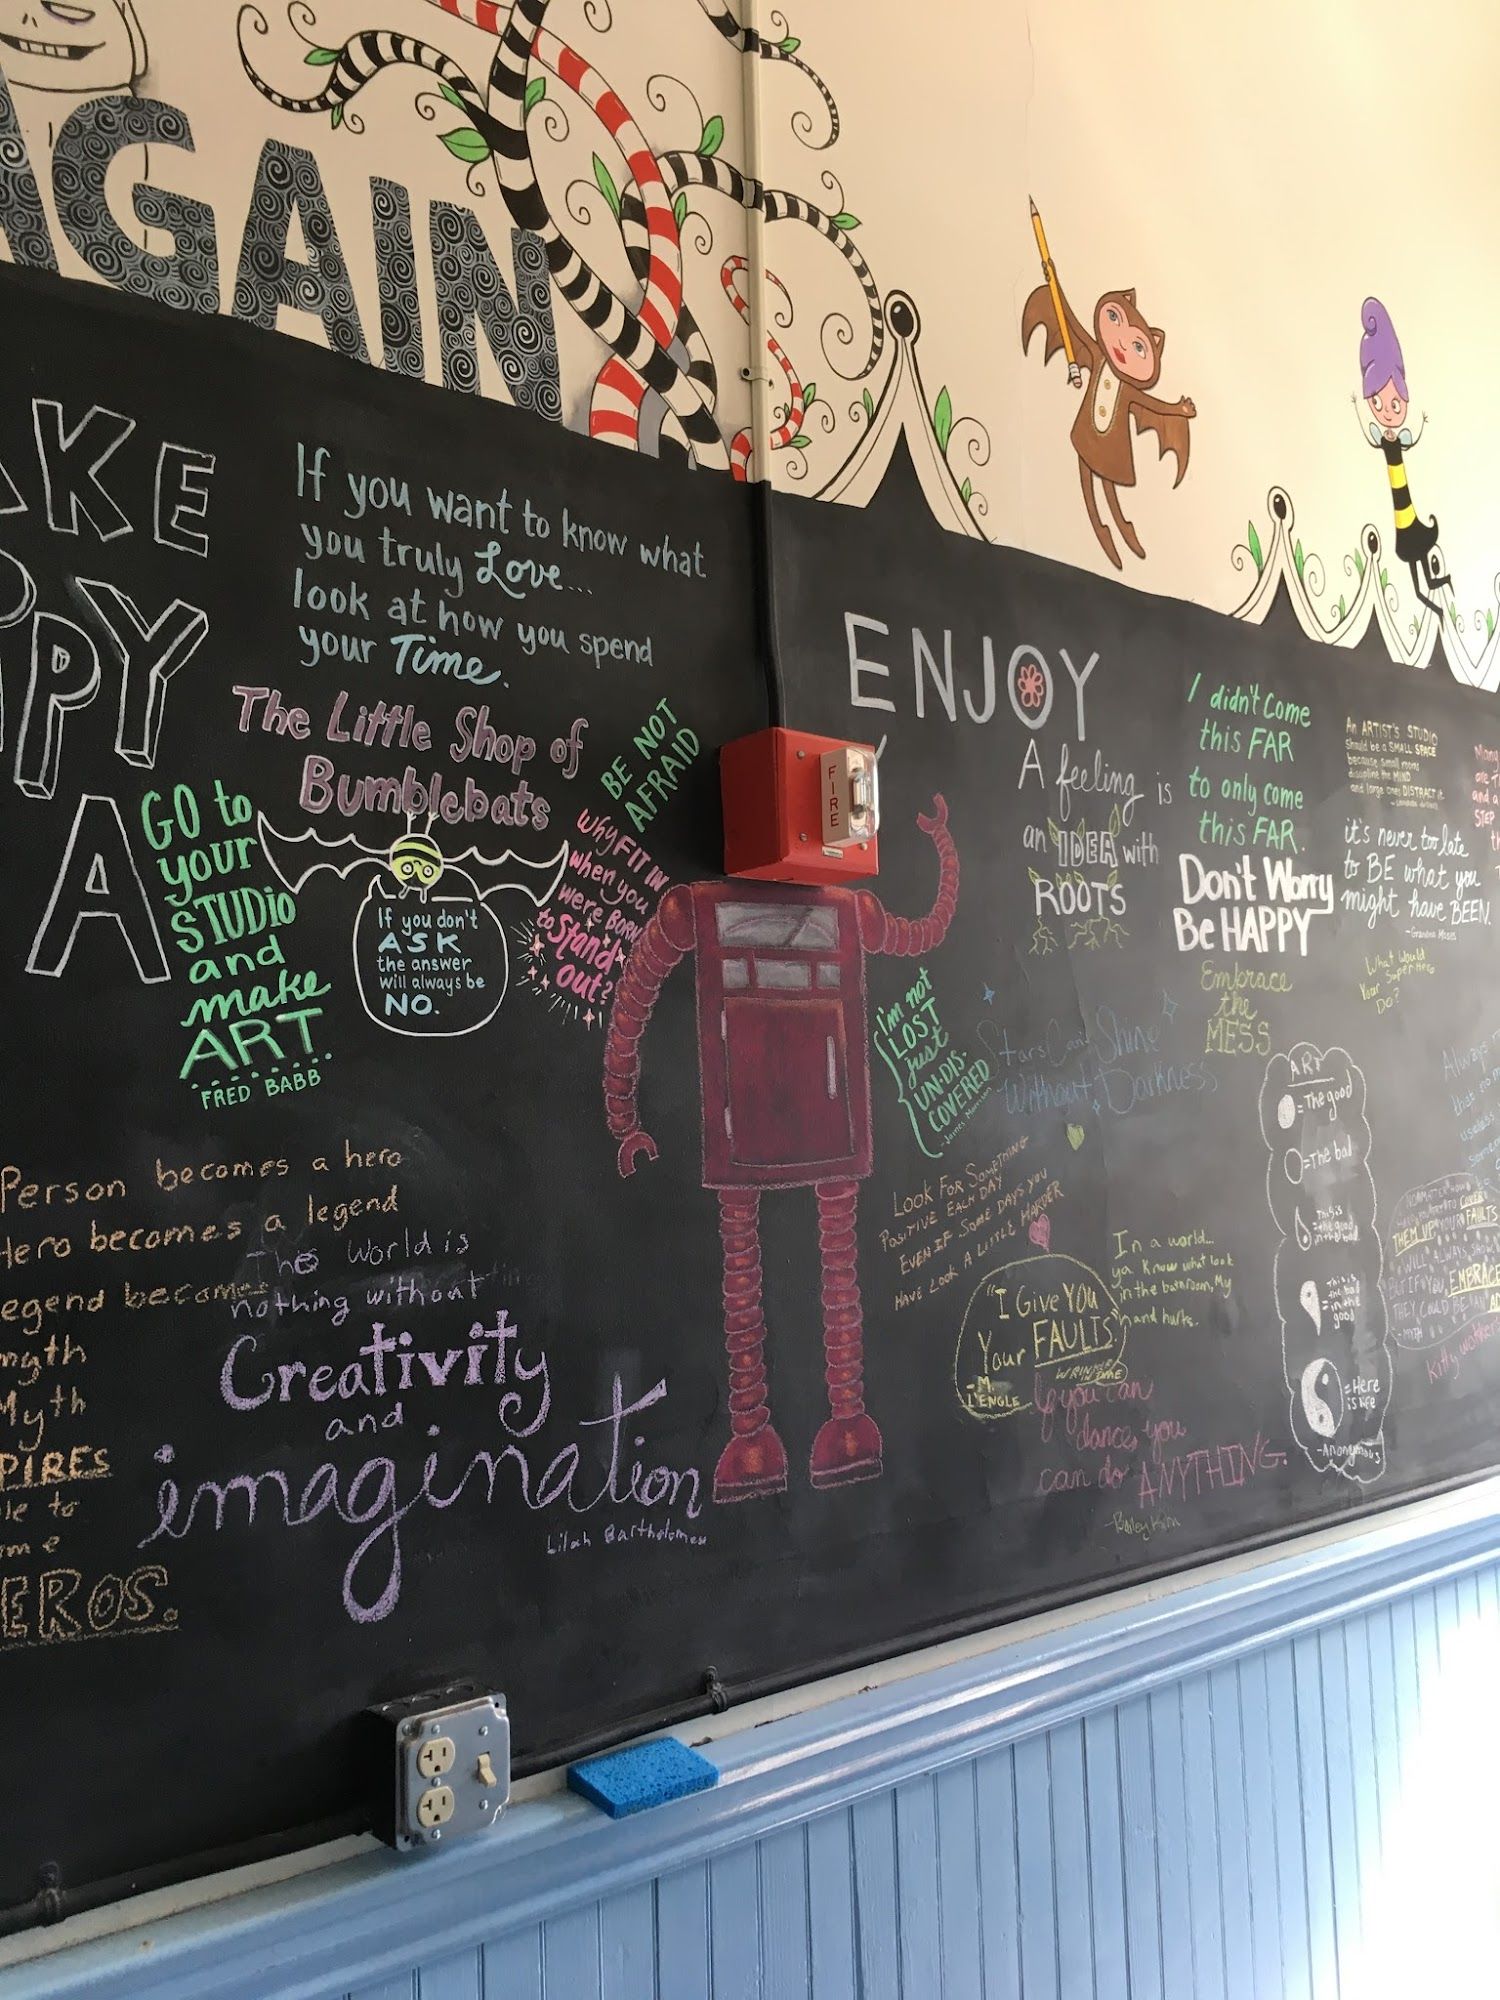 AGAIN
AKE
PPY
A
If you want to know what
you truly Love...
look at how you spend
your Time.
The Little Shop of
Bumblebats
GO to
your
STUDiO
and
make
ART
FRED BABB
If you don't
ASK
the answer
will always be
NO.
BE NOT
AFRAID
Why FIT IN
when you
were BORN
to Stand
out?
FIRE
Person becomes a hero
Hero becomes a legend
egend becomes
myth
Myth
PIRES
le to
me
EROS.
The World is
nothing without
Creativity
and
imagination
Lilah Bartholomew
ENJOY
A feeling is
an IDEA with
ROOTS
I didn't Come
this FAR
to only come
this FAR.
Don't Worry
Be HAPPY
Embrace
the
MESS
An ARTIST'S STUDIO
should be a SMALL SPACE
because small rooms
discipline the MIND
and large ones DISTRACT it.
it's never too late
to BE what you
might have BEEN.
-Grandma Moses
What Would
Your SuperHero
Do?
I'm not
LOST
just
UN-DIS-
COVERED
-James Morrison
Stars Can't Shine
Without Darkness
LOOK FOR SOMETHING
POSITIVE EACH DAY
EVEN IF SOME DAYS YOU
HAVE LOOK A LITTLE HARDER
"I Give YOU
Your FAULTS."
WRINKLE
TIME
-M.
L'ENGLE
In a world...
ya know what look
in the bathroom, My
hand hurts.
If you can
dance, you
can do ANYTHING.
ART
=The good
=The bad
This is
=the good
in the bad
This is
the bad
=in the
good
=Here
is life
-Anonymous
STEP
Always
that no
useless
THEM UP YOUR FAULTS
WILL ALWAYS SHOW
BUT IF YOU EMBRACE
THEY COULD BE